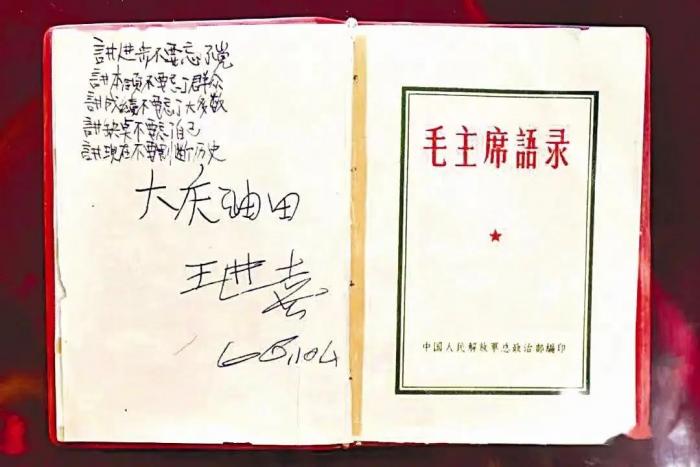 讲进步不要忘了党
讲本领不要忘了群众
讲成绩不要忘了大多数
讲缺点不要忘了自己
讲现在不要割断历史
大庆油田
王进喜
毛主席語录
中国人民解放軍总政治部編印